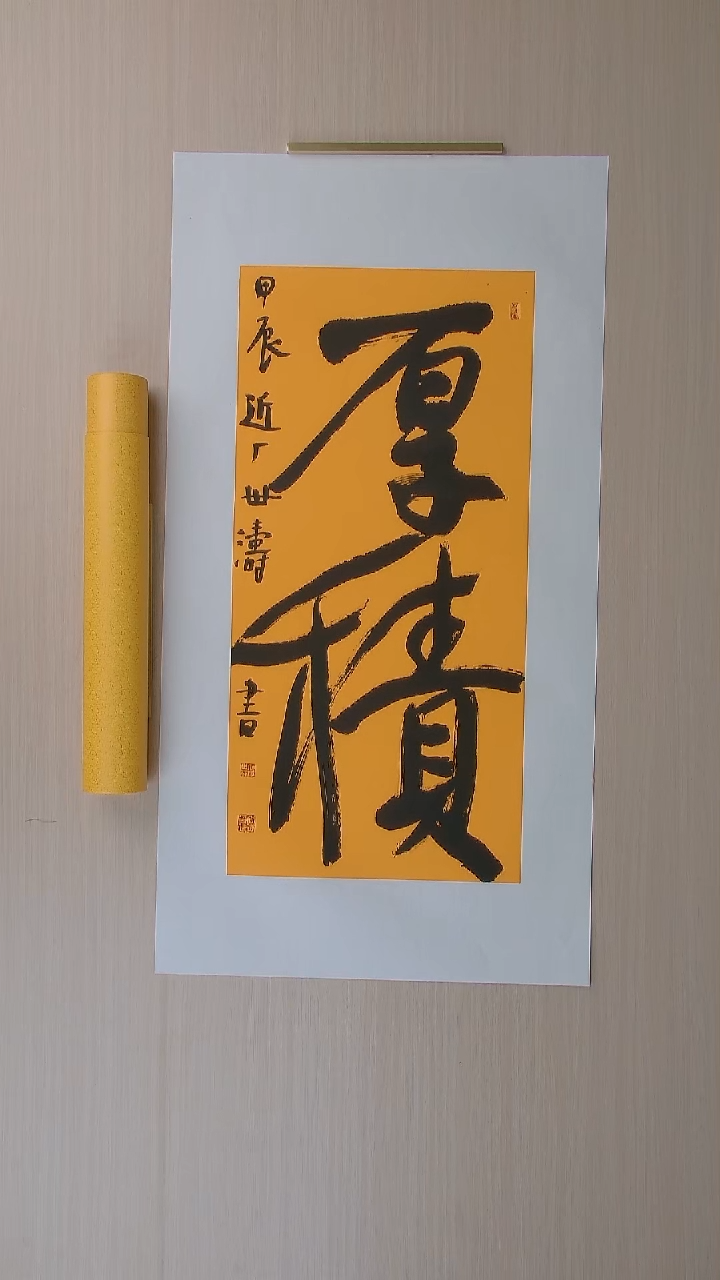 厚積
甲辰近丁世濤書